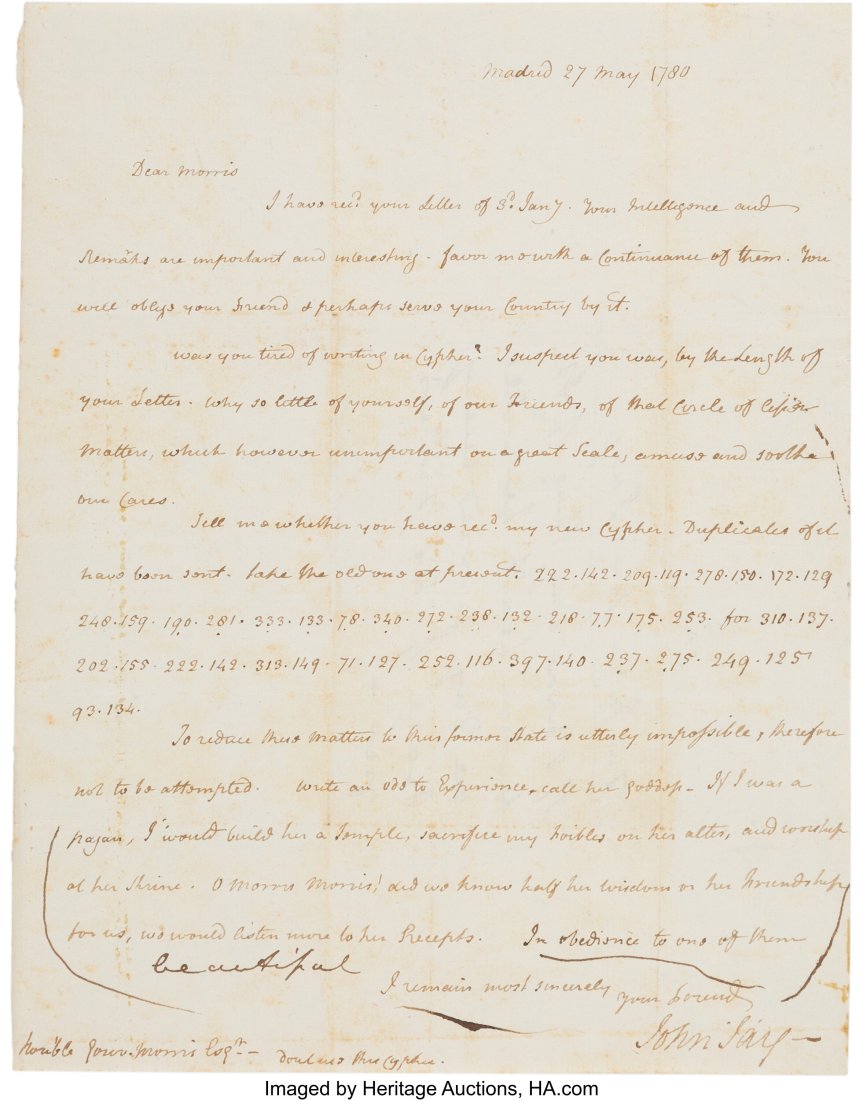 Madrid 27 May 1780
Dear Morris
I have recd. your Letter of 3d. Jany. Your Intelligence and
Remarks are important and interesting. favor me with a Continuance of them. You
will oblige your Friend & perhaps serve your Country by it.
was you tired of writing in Cypher? I suspect you was, by the Length of
your Letter. Why so little of yourself, of our Friends, of that Circle of lesser
Matters, which however unimportant on a great Scale, amuse and soothe
our Cares.
Tell me whether you have recd. my new Cypher. Duplicates of it
have been sent. take the old one at present. 222.142.209.119.278.150.172.129
248.159.190.281.333.133.78.340.272.238.132.218.77.175.253. for 310.137.
202.155.222.142.313.149.71.127.252.116.397.140.237.275.249.125
93.134.
To reduce these Matters to their former State is utterly impossible, therefore
not to be attempted. write an ode to Experience, call her goddess - If I was a
pagan, I would build her a Temple, sacrifice my foibles on her alter, and worship
at her Shrine. O Morris Morris! did we know half her wisdom or her Friendship
for us, we would listen more to her Precepts. In obedience to one of them
beautiful
I remain most sincerely your Friend
John Jay -
honble Gouv. Morris Esqr. - dont use this Cypher.
Imaged by Heritage Auctions, HA.com